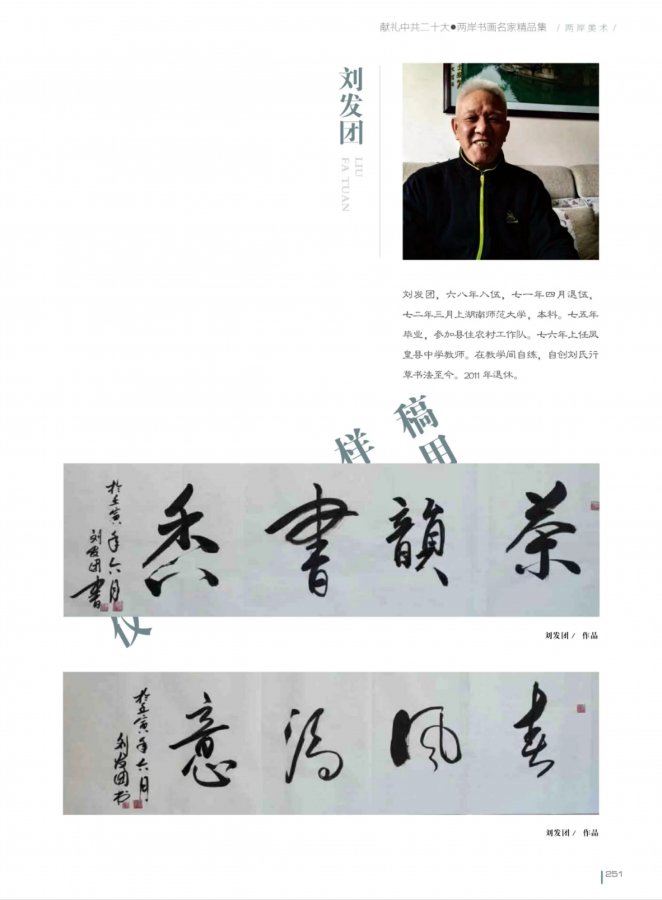 献礼中共二十大●两岸书画名家精品集 / 两岸美术 /
刘发团
LIU
FA TUAN
刘发团，六八年入伍，七一年四月退伍，
七二年三月上湖南师范大学，本科。七五年
毕业，参加县住农村工作队。七六年上任凤
皇县中学教师。在教学间自练，自创刘氏行
草书法至今。2011 年退休。
稿用
样
仅
茶韻書香
於壬寅年六月
刘发团書
刘发团 / 作品
春风得意
於壬寅年六月
刘发团书
刘发团 / 作品
251